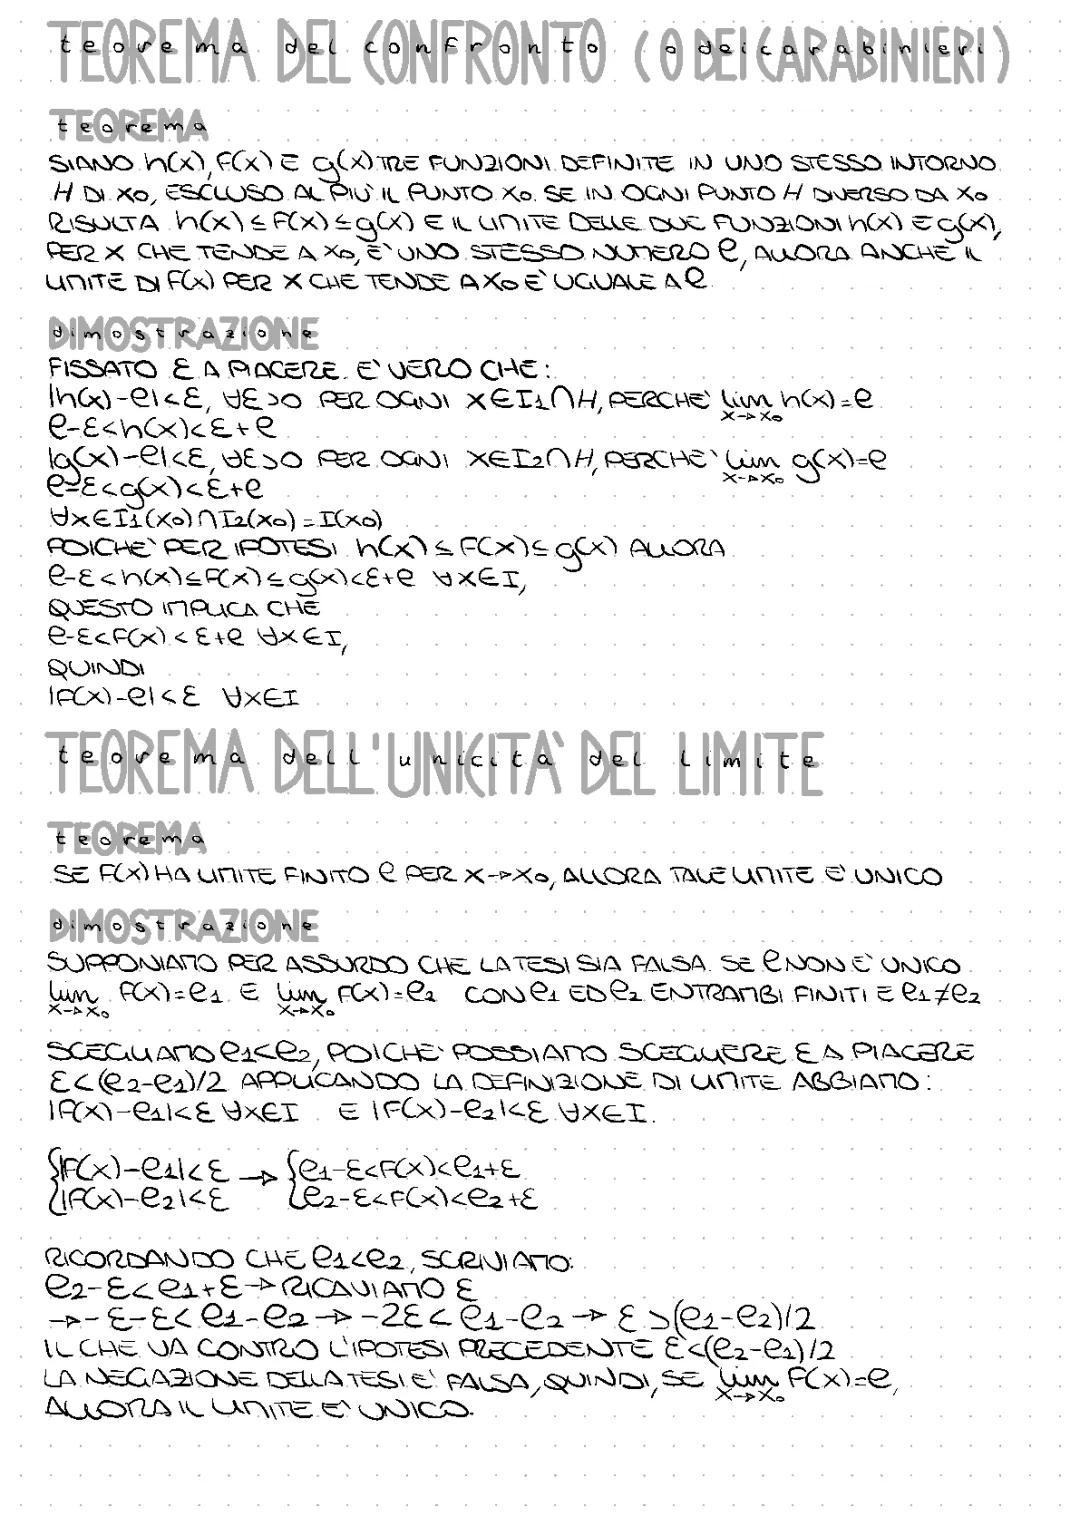 TEOREMA DEL CONFRONTO (O DEI CARABINIERI)
TEOREMA
SIANO h(x), F(x) E g(x) TRE FUNZIONI DEFINITE IN UNO STESSO INTORNO
H DI X0, ESCLUSO AL PIU' IL PUNTO X0. SE IN OGNI PUNTO H DIVERSO DA X0
RISULTA h(x)≤F(x)≤g(x) E IL LIMITE DELLE DUE FUNZIONI h(x) E g(x),
PER X CHE TENDE A X0, E' UNO STESSO NUMERO ℓ, ALLORA ANCHE IL
LIMITE DI F(x) PER X CHE TENDE A X0 E' UGUALE A ℓ.
DIMOSTRAZIONE
FISSATO Ɛ A PIACERE E' VERO CHE:
|h(x)-ℓ|<Ɛ, ∀Ɛ>0 PER OGNI X∈I1∩H, PERCHE' lim x→x0 h(x)=ℓ
ℓ-Ɛ<h(x)<Ɛ+ℓ
|g(x)-ℓ|<Ɛ, ∀Ɛ>0 PER OGNI X∈I2∩H, PERCHE' lim x→x0 g(x)=ℓ
ℓ-Ɛ<g(x)<Ɛ+ℓ
∀x∈I1(x0)∩I2(x0)=I(x0)
POICHE' PER IPOTESI h(x)≤F(x)≤g(x) ALLORA
ℓ-Ɛ<h(x)≤F(x)≤g(x)<Ɛ+ℓ ∀x∈I,
QUESTO IMPLICA CHE
ℓ-Ɛ<F(x)<Ɛ+ℓ ∀x∈I,
QUINDI
|F(x)-ℓ|<Ɛ ∀x∈I
TEOREMA DELL'UNICITA' DEL LIMITE
TEOREMA
SE F(x) HA LIMITE FINITO ℓ PER X→X0, ALLORA TALE LIMITE E' UNICO
DIMOSTRAZIONE
SUPPONIAMO PER ASSURDO CHE LA TESI SIA FALSA. SE ℓ NON E' UNICO
lim x→x0 F(x)=ℓ1 E lim x→x0 F(x)=ℓ2 CON ℓ1 ED ℓ2 ENTRAMBI FINITI E ℓ1≠ℓ2
SCEGLIAMO ℓ1<ℓ2, POICHE' POSSIAMO SCEGLIERE Ɛ A PIACERE
Ɛ<(ℓ2-ℓ1)/2 APPLICANDO LA DEFINIZIONE DI LIMITE ABBIAMO:
|F(x)-ℓ1|<Ɛ ∀x∈I E |F(x)-ℓ2|<Ɛ ∀x∈I.
{|F(x)-ℓ1|<Ɛ → {ℓ1-Ɛ<F(x)<ℓ1+Ɛ
{|F(x)-ℓ2|<Ɛ {ℓ2-Ɛ<F(x)<ℓ2+Ɛ
RICORDANDO CHE ℓ1<ℓ2, SCRIVIAMO:
ℓ2-Ɛ<ℓ1+Ɛ→RICAVIAMO Ɛ
→-Ɛ-Ɛ<ℓ1-ℓ2→-2Ɛ<ℓ1-ℓ2→Ɛ>(ℓ1-ℓ2)/2
IL CHE VA CONTRO L'IPOTESI PRECEDENTE Ɛ<(ℓ2-ℓ1)/2
LA NEGAZIONE DELLA TESI E' FALSA, QUINDI, SE lim x→x0 F(x)=ℓ,
ALLORA IL LIMITE E' UNICO.